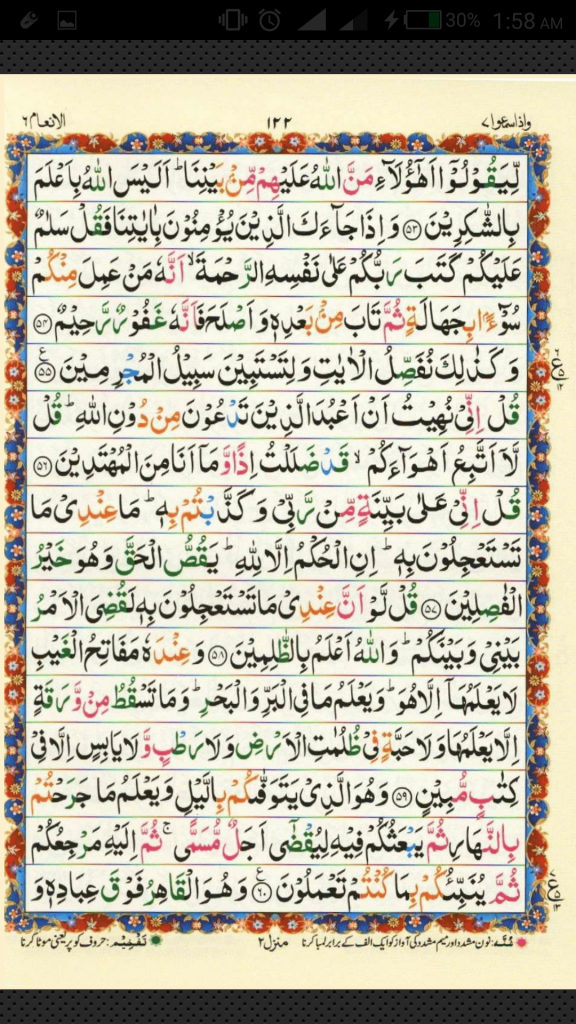 30% 1:58 AM
واذاسمعوا ٧ ١٢٢ الانعام ٦
لِّيَقُوْلُوْۤا اَهٰۤؤُلَآءِ مَنَّ اللّٰهُ عَلَيْهِمْ مِّنْۢ بَيْنِنَا ؕ اَلَيْسَ اللّٰهُ بِاَعْلَمَ
بِالشّٰكِرِيْنَ ﴿۵۳﴾ وَ اِذَا جَآءَكَ الَّذِيْنَ يُؤْمِنُوْنَ بِاٰيٰتِنَا فَقُلْ سَلٰمٌ
عَلَيْكُمْ كَتَبَ رَبُّكُمْ عَلٰى نَفْسِهِ الرَّحْمَةَ ۙ اَنَّهٗ مَنْ عَمِلَ مِنْكُمْ
سُوْٓءًۢا بِجَهَالَةٍ ثُمَّ تَابَ مِنْۢ بَعْدِهٖ وَ اَصْلَحَ فَاَنَّهٗ غَفُوْرٌ رَّحِيْمٌ ﴿۵۴﴾
وَ كَذٰلِكَ نُفَصِّلُ الْاٰيٰتِ وَ لِتَسْتَبِيْنَ سَبِيْلُ الْمُجْرِمِيْنَ ﴿۵۵﴾
قُلْ اِنِّيْ نُهِيْتُ اَنْ اَعْبُدَ الَّذِيْنَ تَدْعُوْنَ مِنْ دُوْنِ اللّٰهِ ؕ قُلْ
لَّاۤ اَتَّبِعُ اَهْوَآءَكُمْ ۙ قَدْ ضَلَلْتُ اِذًا وَّ مَاۤ اَنَا مِنَ الْمُهْتَدِيْنَ ﴿۵۶﴾
قُلْ اِنِّيْ عَلٰى بَيِّنَةٍ مِّنْ رَّبِّيْ وَ كَذَّبْتُمْ بِهٖ ؕ مَا عِنْدِيْ مَا
تَسْتَعْجِلُوْنَ بِهٖ ؕ اِنِ الْحُكْمُ اِلَّا لِلّٰهِ ؕ يَقُصُّ الْحَقَّ وَ هُوَ خَيْرُ
الْفٰصِلِيْنَ ﴿۵۷﴾ قُلْ لَّوْ اَنَّ عِنْدِيْ مَا تَسْتَعْجِلُوْنَ بِهٖ لَقُضِيَ الْاَمْرُ
بَيْنِيْ وَ بَيْنَكُمْ ؕ وَ اللّٰهُ اَعْلَمُ بِالظّٰلِمِيْنَ ﴿۵۸﴾ وَ عِنْدَهٗ مَفَاتِحُ الْغَيْبِ
لَا يَعْلَمُهَاۤ اِلَّا هُوَ ؕ وَ يَعْلَمُ مَا فِي الْبَرِّ وَ الْبَحْرِ ؕ وَ مَا تَسْقُطُ مِنْ وَّرَقَةٍ
اِلَّا يَعْلَمُهَا وَ لَا حَبَّةٍ فِيْ ظُلُمٰتِ الْاَرْضِ وَ لَا رَطْبٍ وَّ لَا يَابِسٍ اِلَّا فِيْ
كِتٰبٍ مُّبِيْنٍ ﴿۵۹﴾ وَ هُوَ الَّذِيْ يَتَوَفّٰىكُمْ بِالَّيْلِ وَ يَعْلَمُ مَا جَرَحْتُمْ
بِالنَّهَارِ ثُمَّ يَبْعَثُكُمْ فِيْهِ لِيُقْضٰۤى اَجَلٌ مُّسَمًّى ۚ ثُمَّ اِلَيْهِ مَرْجِعُكُمْ
ثُمَّ يُنَبِّئُكُمْ بِمَا كُنْتُمْ تَعْمَلُوْنَ ﴿۶۰﴾ وَ هُوَ الْقَاهِرُ فَوْقَ عِبَادِهٖ وَ
غُنَّہ: نون مشدد اور میم مشدد کی آواز کو ایک الف کے برابر لمبا کرنا منزل ۲ تَفْخِیْم: حروف کو پُر یعنی موٹا کرنا